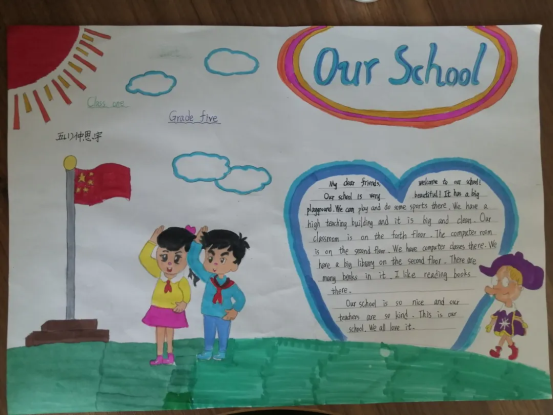 Our School
Class one
Grade five
五(1)钟思宇
My dear friends, welcome to our school!
Our school is very beautiful! It has a big
playground. We can play and do some sports there. We have a
high teaching building and it is big and clean. Our
classroom is on the forth floor. The computer room
is on the second floor. We have computer classes there. We
have a big library on the second floor. There are
many books in it. I like reading books
there.
Our school is so nice and our
teachers are so kind. This is our
school. We all love it.